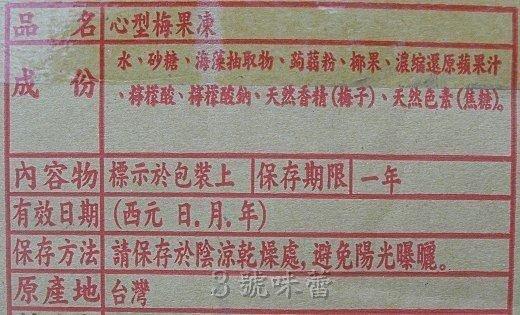 品名 心型梅果凍
成份 水、砂糖、海藻抽取物、蒟蒻粉、椰果、濃縮還原蘋果汁
、檸檬酸、檸檬酸鈉、天然香精(梅子)、天然色素(焦糖)。
內容物 標示於包裝上 保存期限 一年
有效日期 (西元 日.月.年)
保存方法 請保存於陰涼乾燥處,避免陽光曝曬。
原產地 台灣
3號味蕾